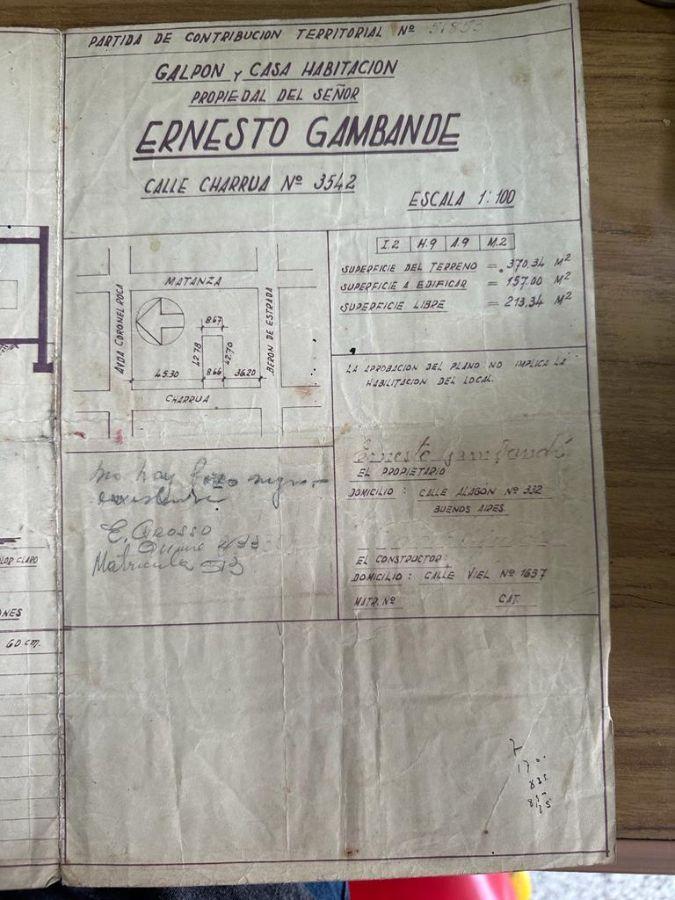 PARTIDA DE CONTRIBUCION TERRITORIAL Nº 51853
GALPON Y CASA HABITACION
PROPIEDAL DEL SEÑOR
ERNESTO GAMBANDE
CALLE CHARRUA Nº 3542
ESCALA 1:100
MATANZA
AVDA CORONEL ROCA
BERON DE ESTRADA
8.67
42.78
42.70
45.30
8.66
36.20
CHARRUA
I.2 H.9 A.9 M.2
SUPERFICIE DEL TERRENO = 370.34 M2
SUPERFICIE A EDIFICAR = 157.00 M2
SUPERFICIE LIBRE = 213.34 M2
LA APROBACION DEL PLANO NO IMPLICA LA
HABILITACION DEL LOCAL.
no hay pozo negro
existente
E. GROSSO
Matricula 513
Ernesto Gambande
EL PROPIETARIO
DOMICILIO : CALLE ALAGON Nº 332
BUENOS AIRES
EL CONSTRUCTOR:
DOMICILIO : CALLE VIEL Nº 1637
MATR. Nº CAT.
LOR CLARO
NES
60 cm.